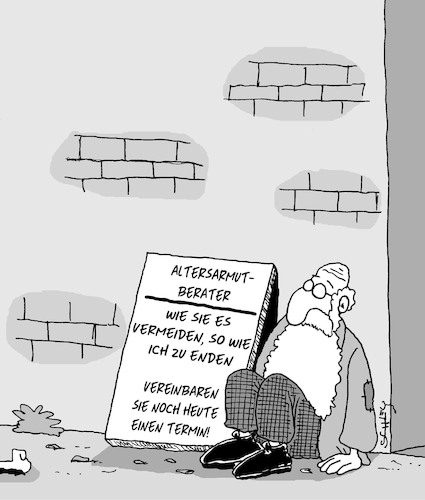 ALTERSARMUT-
BERATER
WIE SIE ES
VERMEIDEN, SO WIE
ICH ZU ENDEN
VEREINBAREN
SIE NOCH HEUTE
EINEN TERMIN!